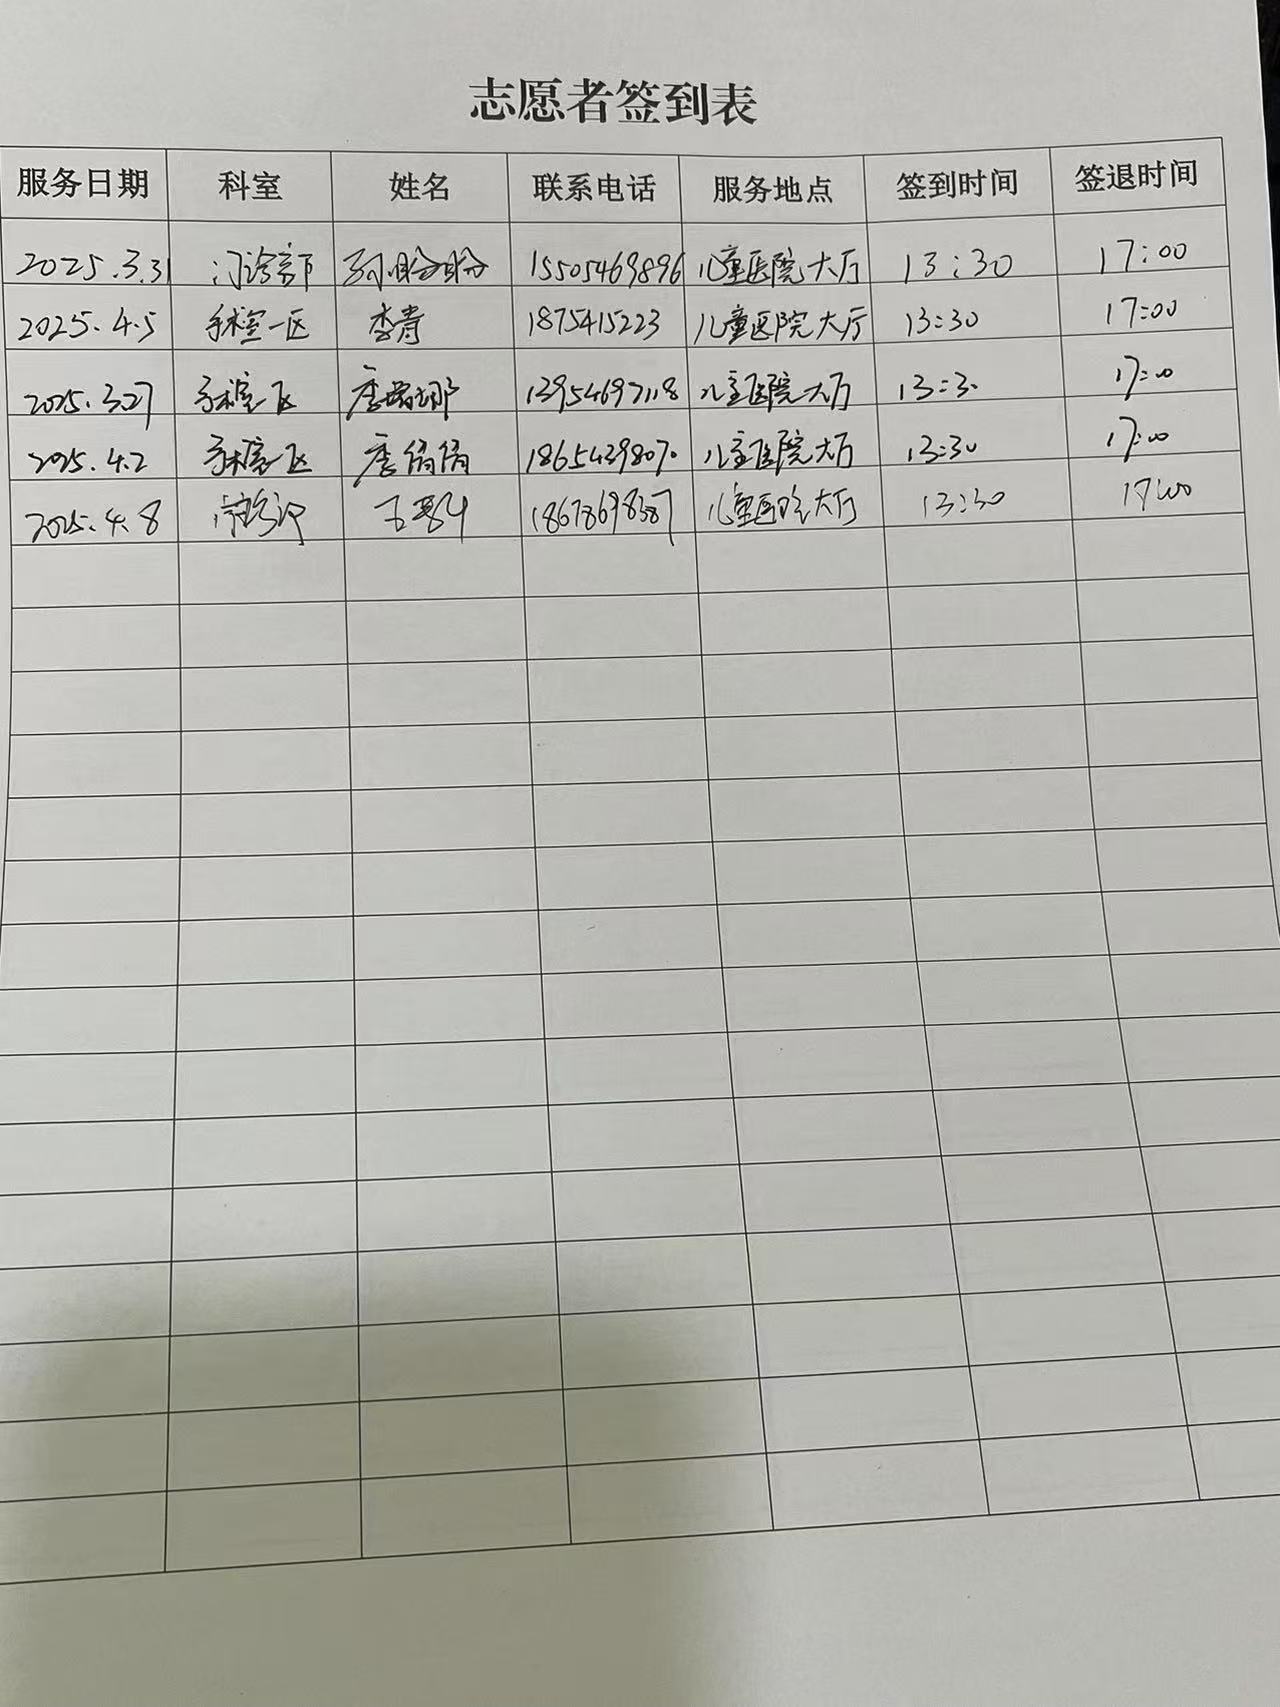 志愿者签到表
服务日期 科室 姓名 联系电话 服务地点 签到时间 签退时间
2025.3.31 门诊部 孙盼盼 15505469896 儿童医院大厅 13:30 17:00
2025.4.5 手术室一区 李青 1875415223 儿童医院大厅 13:30 17:00
2025.3.27 手术室一区 13954697118 儿童医院大厅 13:30 17:00
2025.4.2 手术室一区 儿童医院大厅 13:30 17:00
2025.4.8 18678698387 儿童医院大厅 13:30 17:00